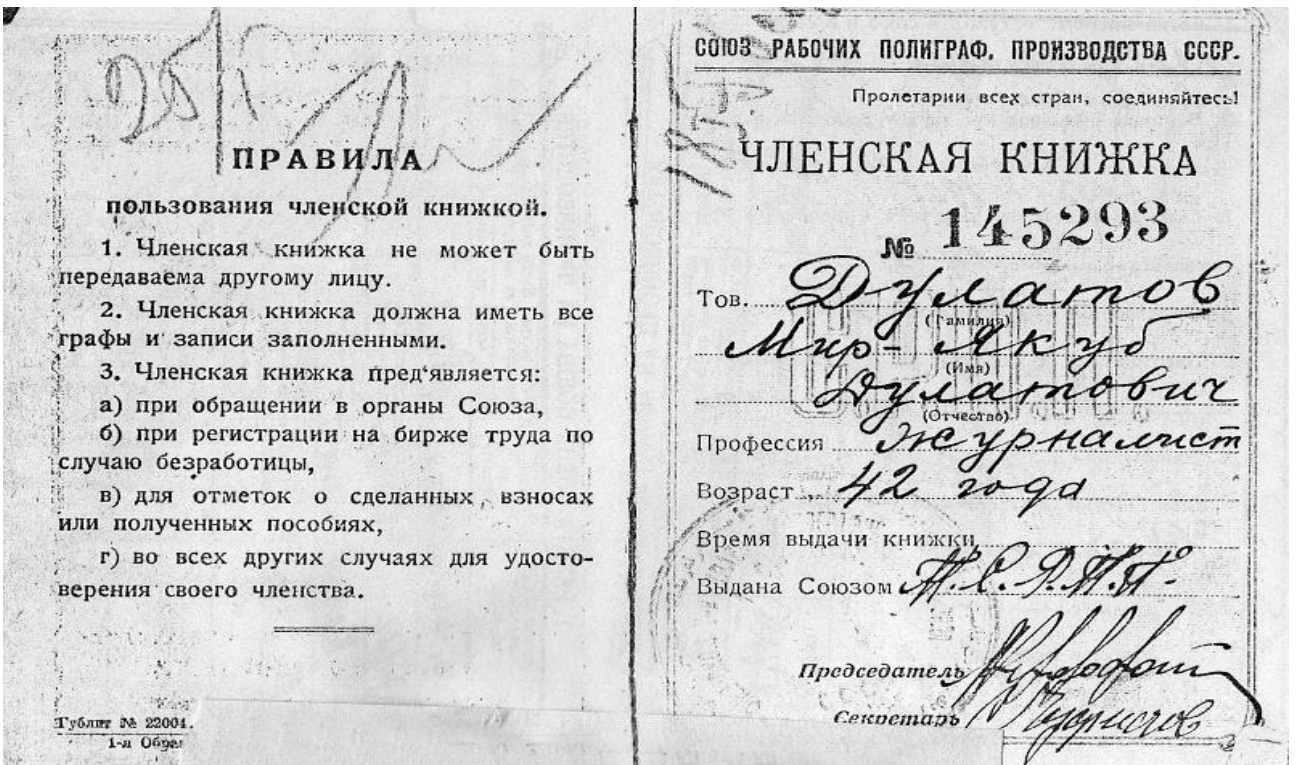 ПРАВИЛА
пользования членской книжкой.
1. Членская книжка не может быть
передаваема другому лицу.
2. Членская книжка должна иметь все
графы и записи заполненными.
3. Членская книжка пред‘является:
а) при обращении в органы Союза,
б) при регистрации на бирже труда по
случаю безработицы,
в) для отметок о сделанных взносах
или полученных пособиях,
г) во всех других случаях для удосто-
верения своего членства.
Гублит № 22001.
1-я
СОЮЗ РАБОЧИХ ПОЛИГРАФ. ПРОИЗВОДСТВА СССР.
Пролетарии всех стран, соединяйтесь!
ЧЛЕНСКАЯ КНИЖКА
№ 145293
Тов. Дулатов
(Фамилия)
Мир-Якуб
(Имя)
Дулатович
(Отчество)
Профессия журналист
Возраст 42 года
Время выдачи книжки
Выдана Союзом
Председатель
Секретарь